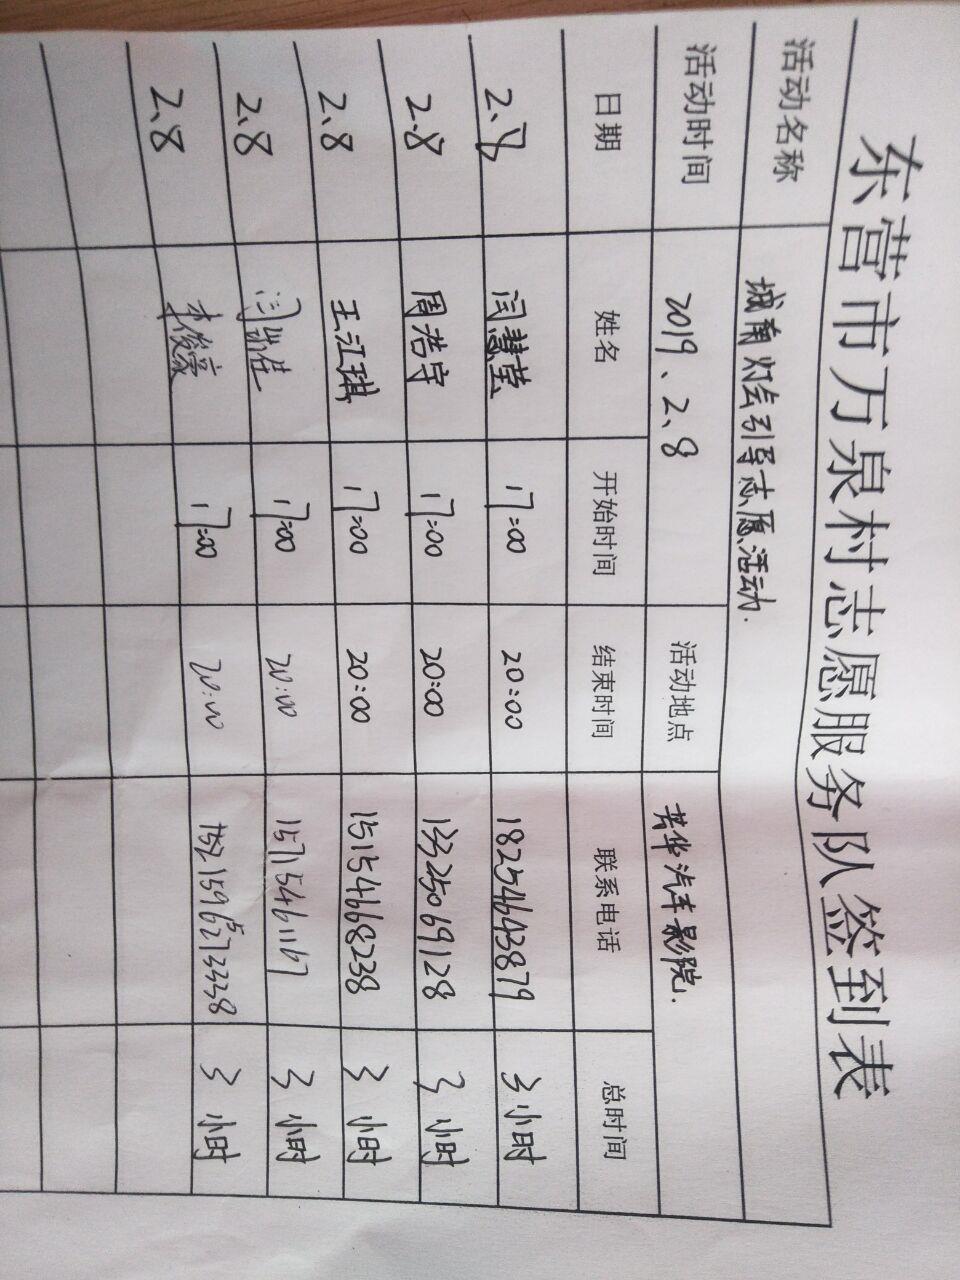 东营市万泉村志愿服务队签到表
活动名称 城南灯会引导志愿活动.
活动时间 2019、2.8 活动地点 芳华汽车影院.
日期 姓名 开始时间 结束时间 联系电话 总时间
2.8 闫慧莹 17:00 20:00 18254643879 3小时
2.8 周浩宇 17:00 20:00 13325069128 3小时
2.8 王江琪 17:00 20:00 15154668238 3小时
2.8 17:00 20:00 15715461167 3小时
2.8 李俊豪 17:00 20:00 3小时